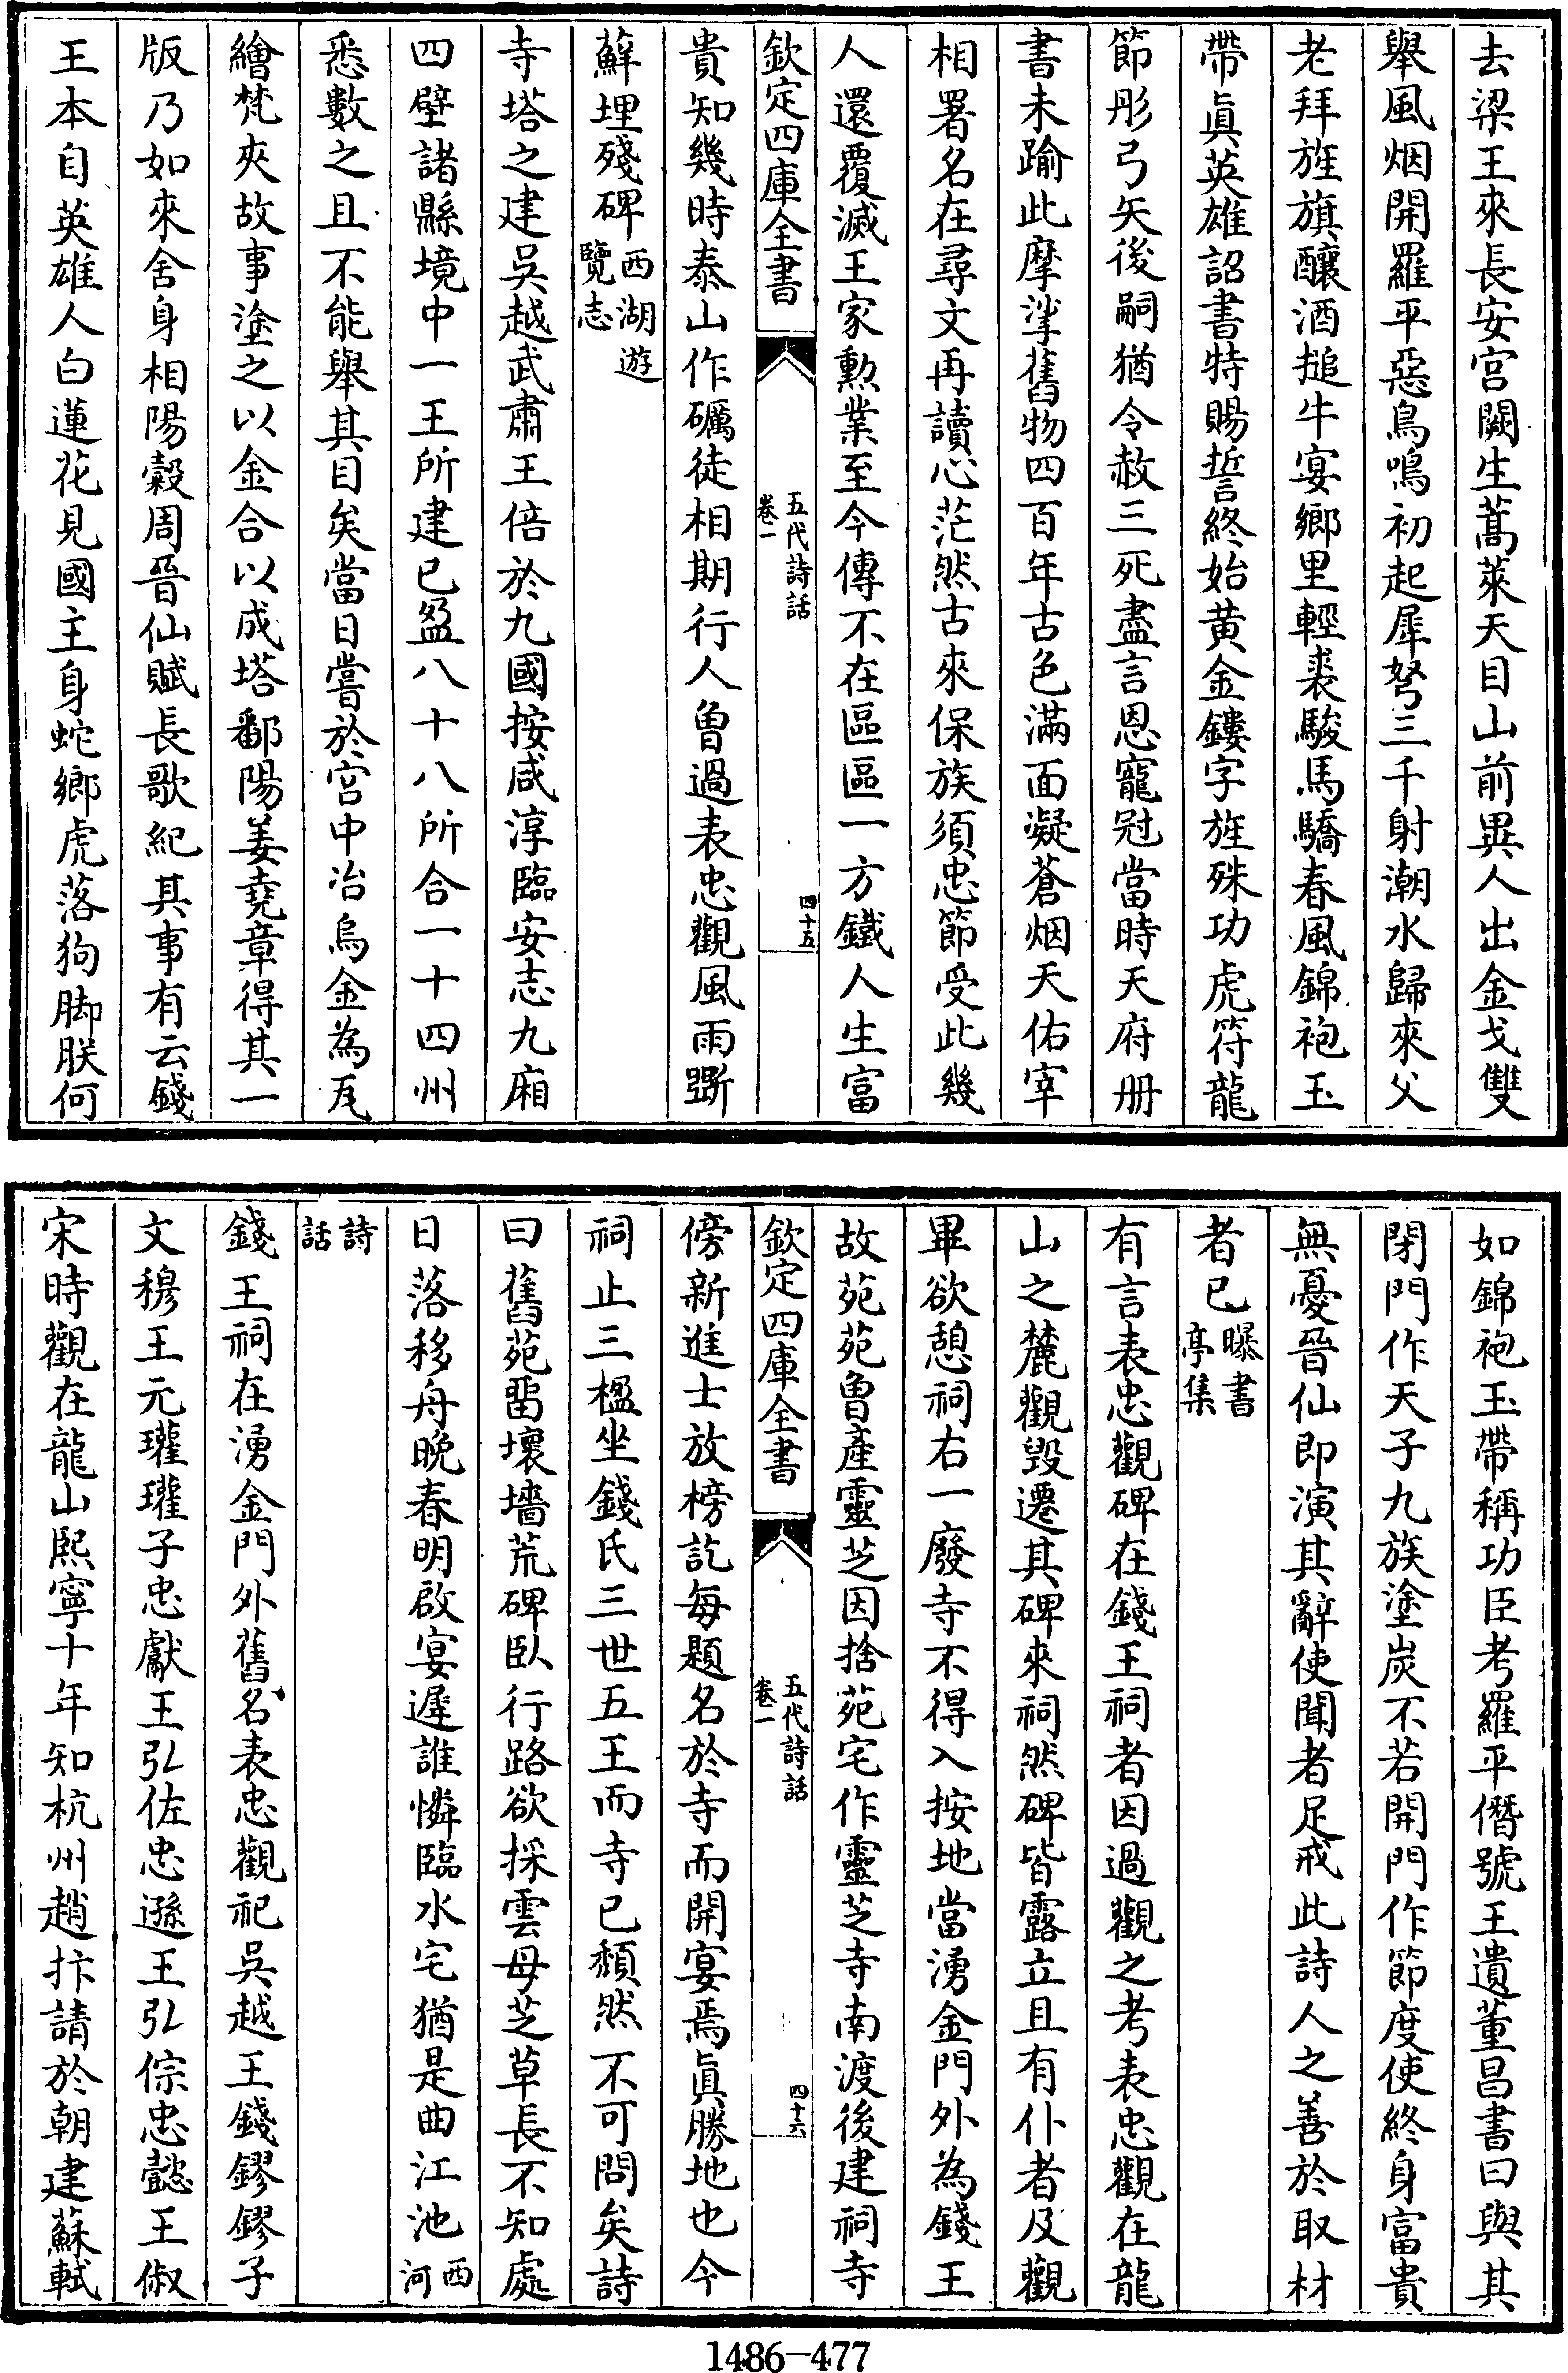 去梁王來長安宫闕生蒿萊天目山前異人出金戈雙
舉風烟開羅平惡鳥鳴初起犀弩三千射潮水歸來父
老拜旌旗釀酒搥牛宴鄉里輕裘駿馬驕春風錦袍玉
帶眞英雄詔書特賜誓終始黄金鏤字旌殊功虎符龍
節彤弓矢後嗣猶令赦三死盡言恩寵冠當時天府册
書未踰此摩挲舊物四百年古色滿面凝蒼烟天佑宰
相署名在尋文再讀心茫然古來保族須忠節受此幾
人還覆滅王家勲業至今傳不在區區一方鐵人生富
欽定四庫全書
五代詩話
卷一
四十五
貴知幾時泰山作礪徒相期行人曾過表忠觀風雨斲
蘚埋殘碑西湖遊
覽志
寺塔之建吳越武肅王倍於九國按咸淳臨安志九廂
四壁諸縣境中一王所建已盈八十八所合一十四州
悉數之且不能舉其目矣當日嘗於宫中冶烏金為瓦
繪梵夾故事塗之以金合以成塔鄱陽姜堯章得其一
版乃如來舍身相陽穀周晉仙賦長歌紀其事有云錢
王本自英雄人白蓮花見國主身蛇鄉虎落狗脚朕何
如錦袍玉帶稱功臣考羅平僭號王遺董昌書曰與其
閉門作天子九族塗炭不若開門作節度使終身富貴
無憂晉仙即演其辭使聞者足戒此詩人之善於取材
者已曝書
亭集
有言表忠觀碑在錢王祠者因過觀之考表忠觀在龍
山之麓觀毁遷其碑來祠然碑皆露立且有仆者及觀
畢欲憩祠右一廢寺不得入按地當湧金門外為錢王
故苑苑曾產靈芝因捨苑宅作靈芝寺南渡後建祠寺
欽定四庫全書
五代詩話
卷一
四十六
傍新進士放榜訖每題名於寺而開宴焉眞勝地也今
祠止三楹坐錢氏三世五王而寺已頹然不可問矣詩
曰舊苑畱壞墻荒碑臥行路欲採雲母芝草長不知處
日落移舟晚春明啟宴遲誰憐臨水宅猶是曲江池西
河
詩
話
錢王祠在湧金門外舊名表忠觀祀吳越王錢鏐鏐子
文穆王元瓘瓘子忠獻王弘佐忠遜王弘倧忠懿王俶
宋時觀在龍山熙寧十年知杭州趙抃請於朝建蘇軾
1486-477